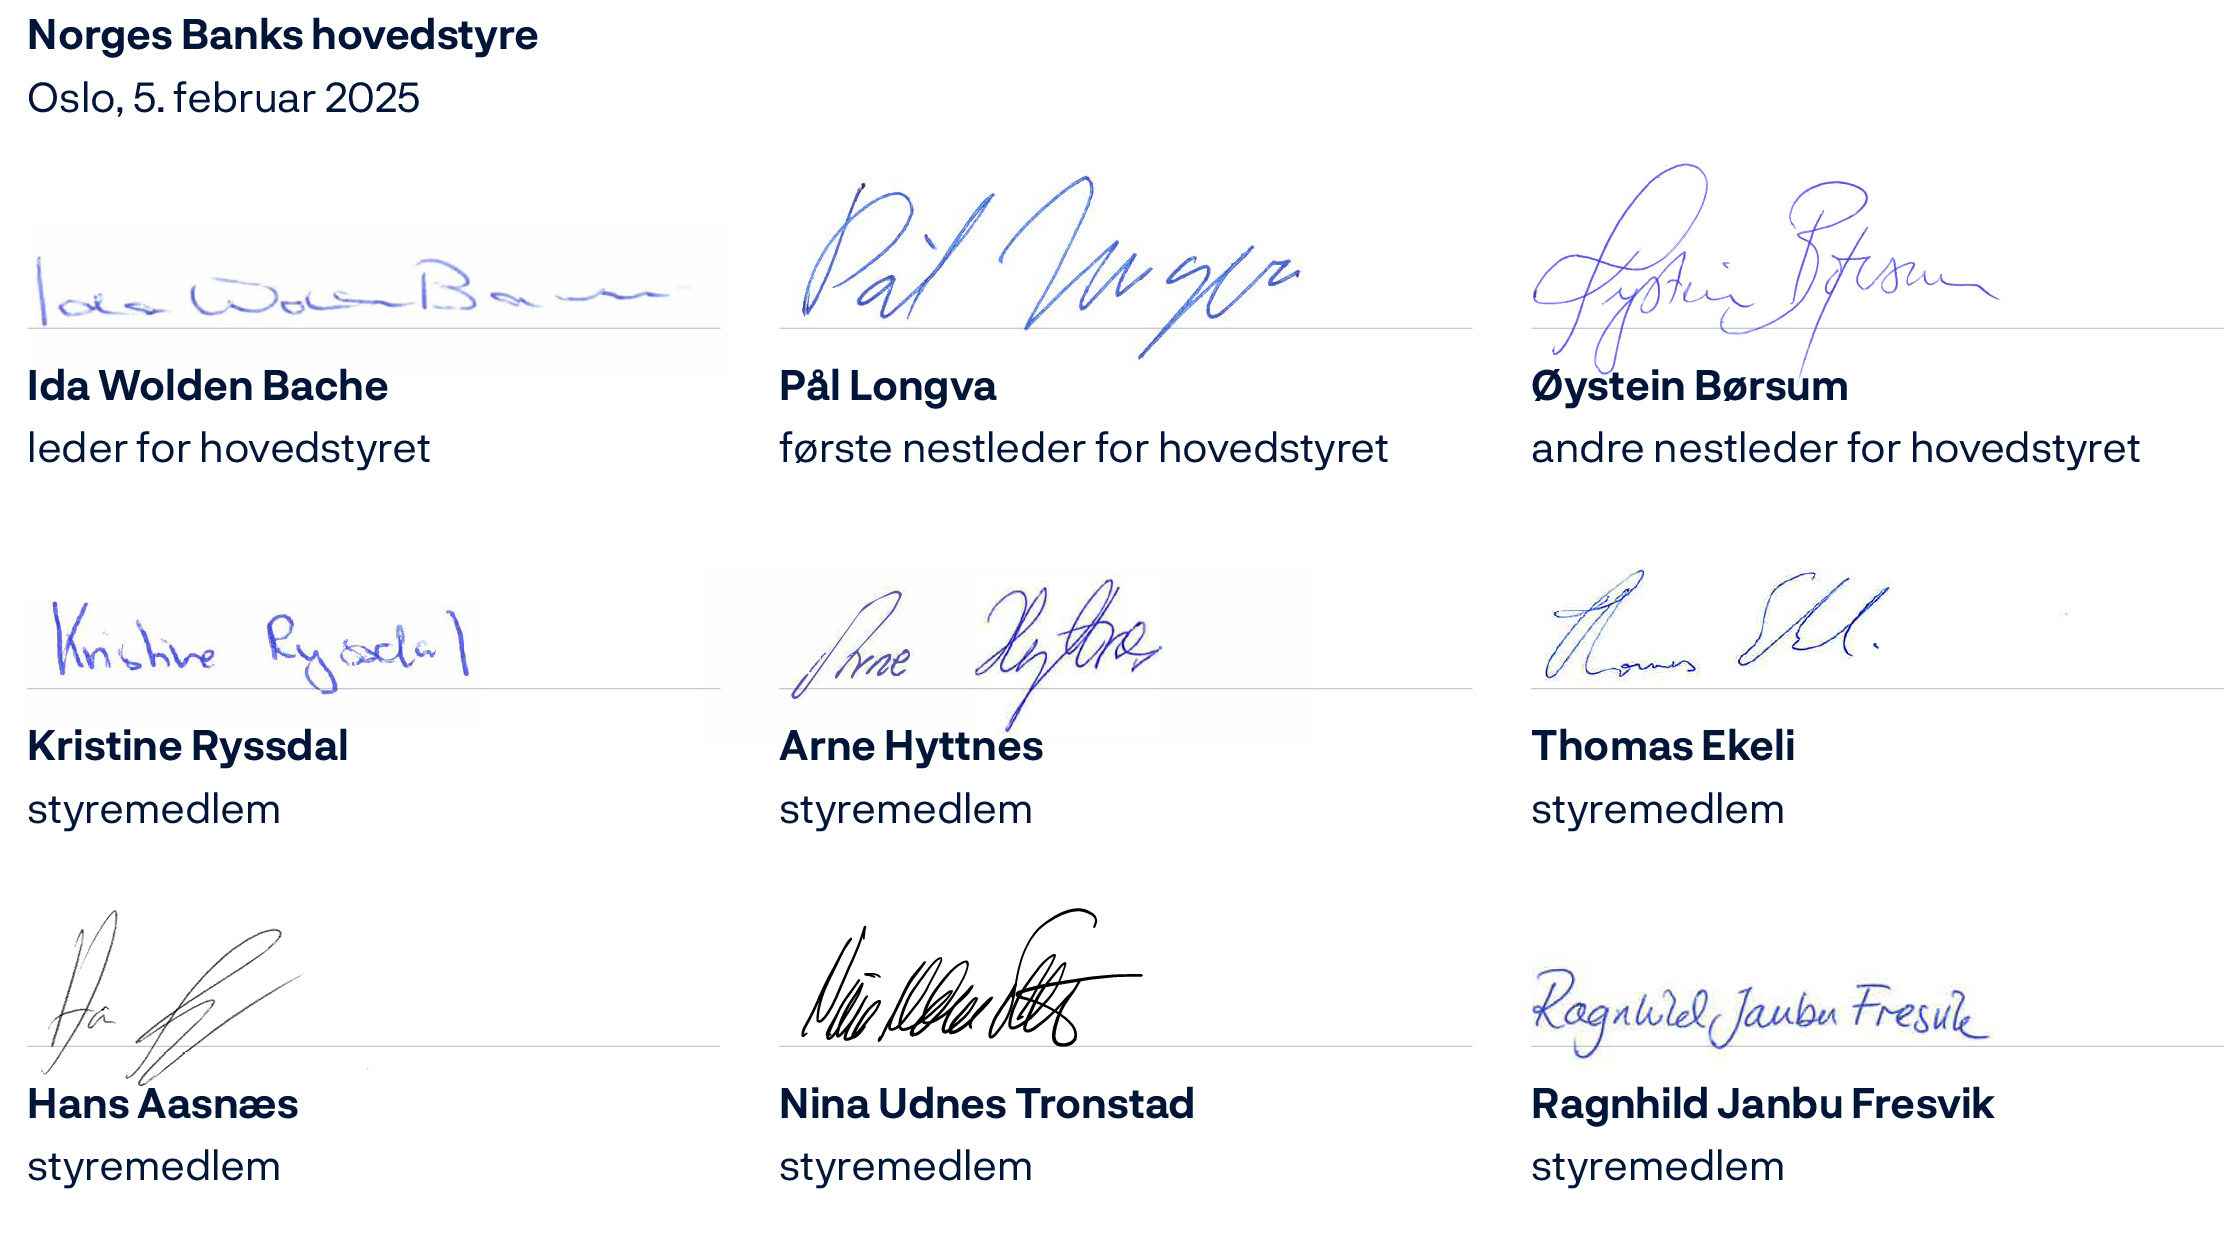 Norges Banks hovedstyre
Oslo, 5. februar 2025
Ida Wolden Bache
Pål Longva
Øystein Børsum
Ida Wolden Bache
leder for hovedstyret
Pål Longva
første nestleder for hovedstyret
Øystein Børsum
andre nestleder for hovedstyret
Kristine Ryssdal
Arne Hyttnes
Thomas
Kristine Ryssdal
styremedlem
Arne Hyttnes
styremedlem
Thomas Ekeli
styremedlem
Ragnhild Janbu Fresvik
Hans Aasnæs
styremedlem
Nina Udnes Tronstad
styremedlem
Ragnhild Janbu Fresvik
styremedlem